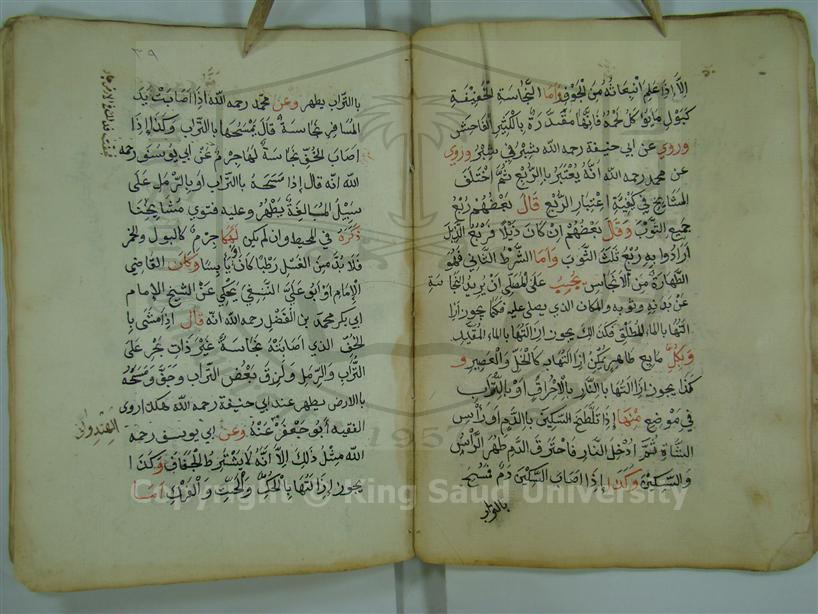 الا اذا علم انبعاثه من الجوف واما النجاسة الخفيفة
كبول ما يؤكل لحمه فانها مقدرة بالكثير الفاحش
وروي عن ابي حنيفة رحمه الله شبر في شبر وروي
عن محمد رحمه الله انه يعتبر بالربع ثم اختلف
المشايخ في كيفية اعتبار الربع قال بعضهم ربع
جميع الثوب وقال بعضهم ان كان ذيلا فربع الذيل
ارادوا به ربع تلك الثوب واما الشرط الثاني فهو
الطهارة من الانجاس يجب على المصلي ان يزيل النجاسة
عن بدنه وثوبه والمكان الذي يصلي عليه فكما يجوز ازا
التها بالماء المطلق فكذلك يجوز ازالتها بالماء المقيد
وبكل مايع طاهر يمكن ازالتها به كالخل والعصير و
كذا يجوز ازالتها بالنار بالاحراق او بالتراب
في موضع منها اذا تلطخ السكين بالدم او رأس
الشاة ثم ادخل النار فاحترق الدم طهر الرأس
والسكين وكذا اذا اصاب السكين دم فمسح
بالتراب
٣٩
بالتراب يطهر وعن محمد رحمه الله اذا اصابت يد
المسافر نجاسة قال يمسحها بالتراب وكذا اذا
اصاب الخف نجاسة لها جرم عن ابي يوسف رحمه
الله انه قال اذا مسحه بالتراب او بالرمل على
سبيل المبالغة يطهر وعليه فتوي مشايخنا
ذكره في المحيط وان لم يكن لها جرم كالبول والخمر
فلا بد من الغسل رطبا كان او يابسا وكان القاضي
الامام ابو علي النسفي يحكي عن الشيخ الامام
ابي بكر محمد بن الفضل رحمه الله انه قال اذا مشى با
لخف الذي اصابته نجاسة غير ذات جرم على
التراب والرمل ولزق بعض التراب وجف ومسحه
بالارض يطهر عند ابي حنيفة رحمه الله هكذا روى
الفقيه ابو جعفر عنه وعن ابي يوسف رحمه
الله مثل ذلك الا انه لا يشترط الجفاف وكذا
يجوز ازالتها بالحك والحت والفرك اما
الهندواني
Copyright © King Saud University
1957